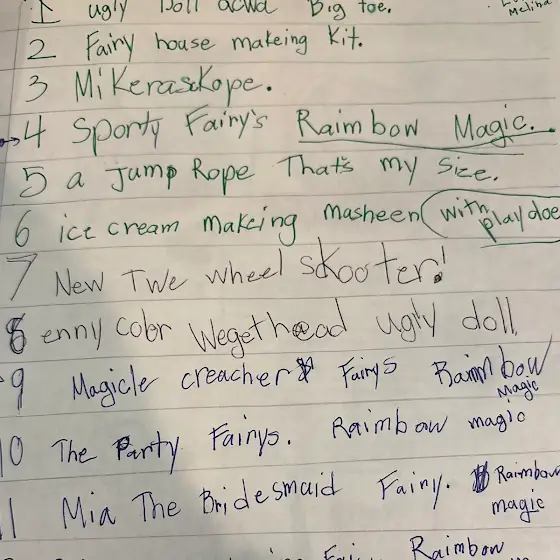 1 ugly Doll acwa Big toe.
Melina
2 Fairy house makeing Kit.
3 Mikeraskope.
4 Sporty Fairy's Raimbow Magic.
5 a Jump Rope That's my size.
6 ice cream makeing masheen with
playdoe
7 New Twe wheel skooter!
8 enny color Wegethead ugly doll,
9 Magicle creacher Fairys Raimbow
Magic
10 The Party Fairys. Raimbow magic
11 Mia The Bridesmaid Fairy. Raimbow
magic
Raimbow